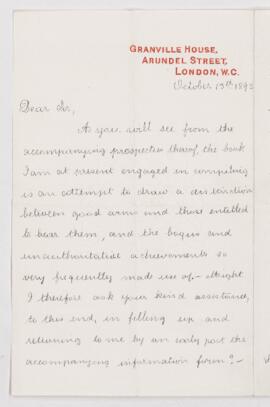 GRANVILLE HOUSE,
ARUNDEL STREET,
LONDON, W.C.
October 13th 189
Dear Sir,
As you will see from the
accompanying prospectus thereof, the book
I am at present engaged in compiling
is an attempt to draw a distinction
between good arms and those entitled
to bear them, and the bogus and
unauthoritative achievements so
very frequently made use of.- Might
I therefore ask your kind assistance,
to this end, in filling up and
returning to me by an early post the
accompanying information form?-